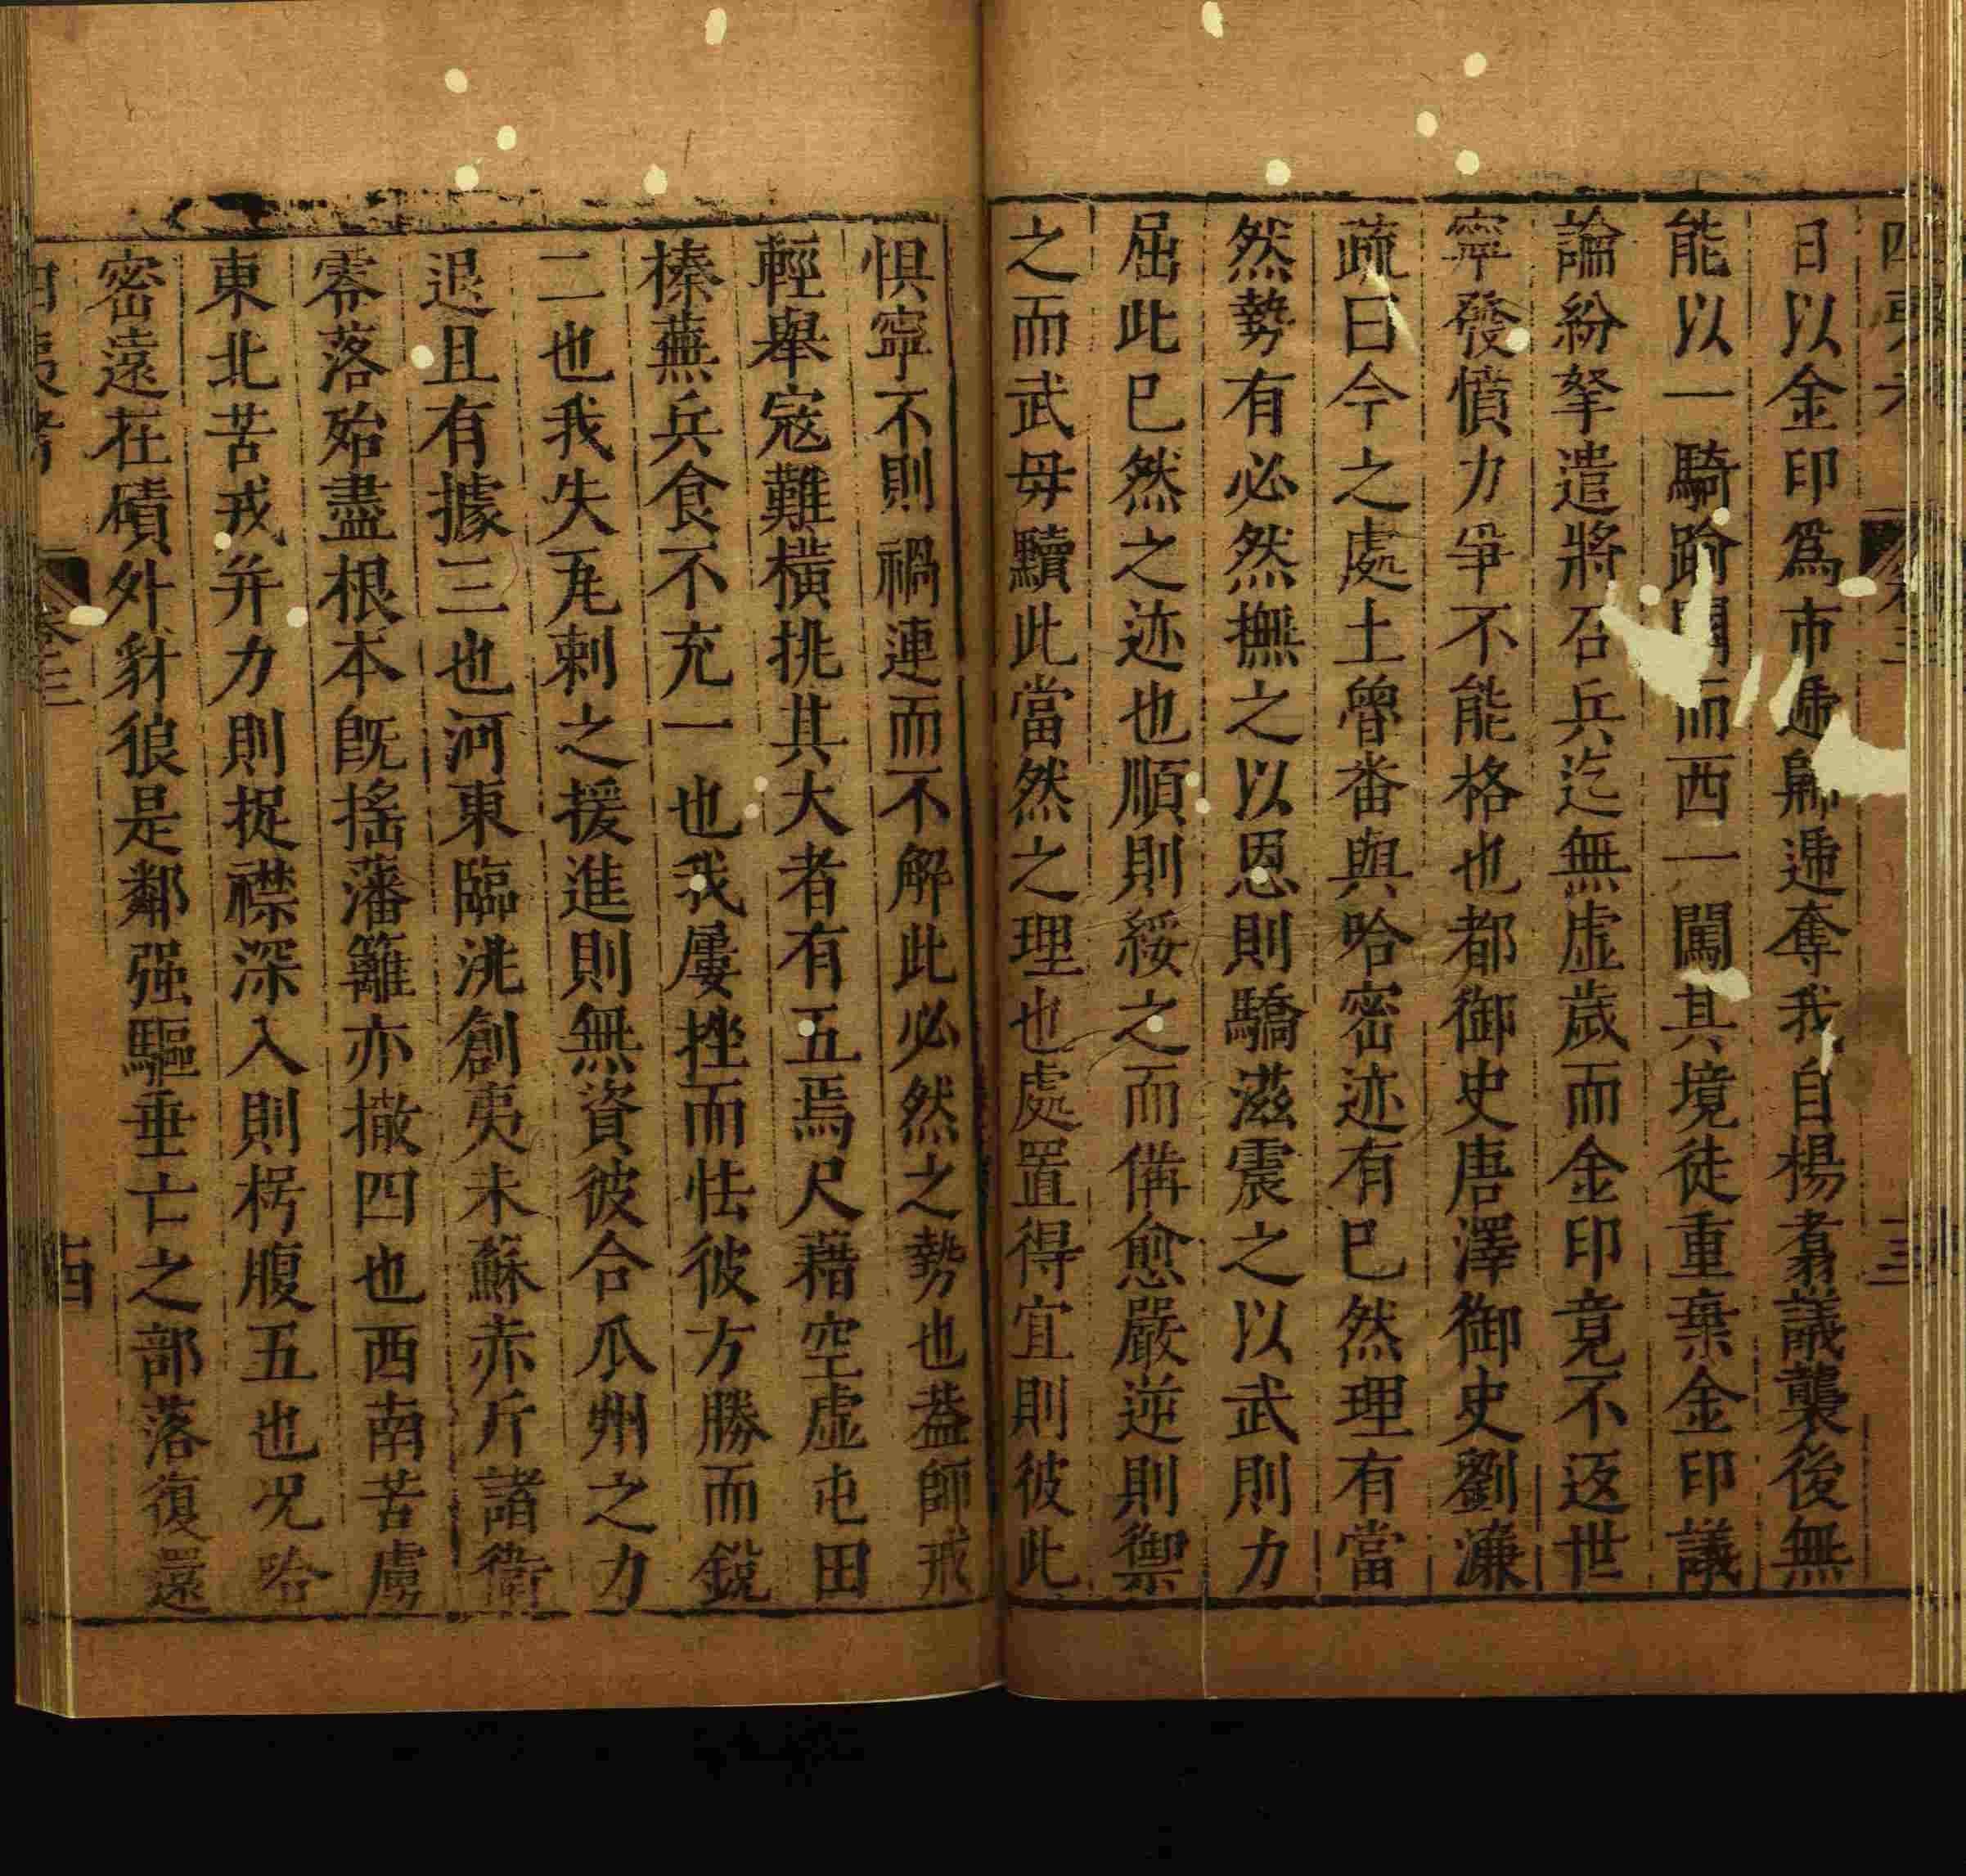 日以金印爲市遞歸遞奪我自揚翥議襲後無
能以一騎踰關而西一闖其境徒重棄金印議
論紛拏遣將召兵迄無虛歲而金印竟不返世
寧發憤力爭不能格也都御史唐澤御史劉濂
疏曰今之處土魯番與哈密迹有巳然理有當
然勢有必然撫之以恩則驕滋震之以武則力
屈此巳然之迹也順則綏之而備愈嚴逆則禦
之而武毋黷此當然之理也處置得宜則彼此
惧寧不則禍連而不解此必然之勢也葢師戒
輕舉寇難橫挑其大者有五焉尺藉空虛屯田
榛蕪兵食不充一也我屢挫而怯彼方勝而銳
二也我失瓦剌之援進則無資彼合瓜州之力
退且有據三也河東臨洮創夷未蘇赤斤諸衛
零落殆盡根本旣搖藩籬亦撤四也西南苦虜
東北苦戎并力則捉襟深入則枵腹五也況哈
密遠在磧外豺狼是鄰强驅垂亡之部落復還
卷三